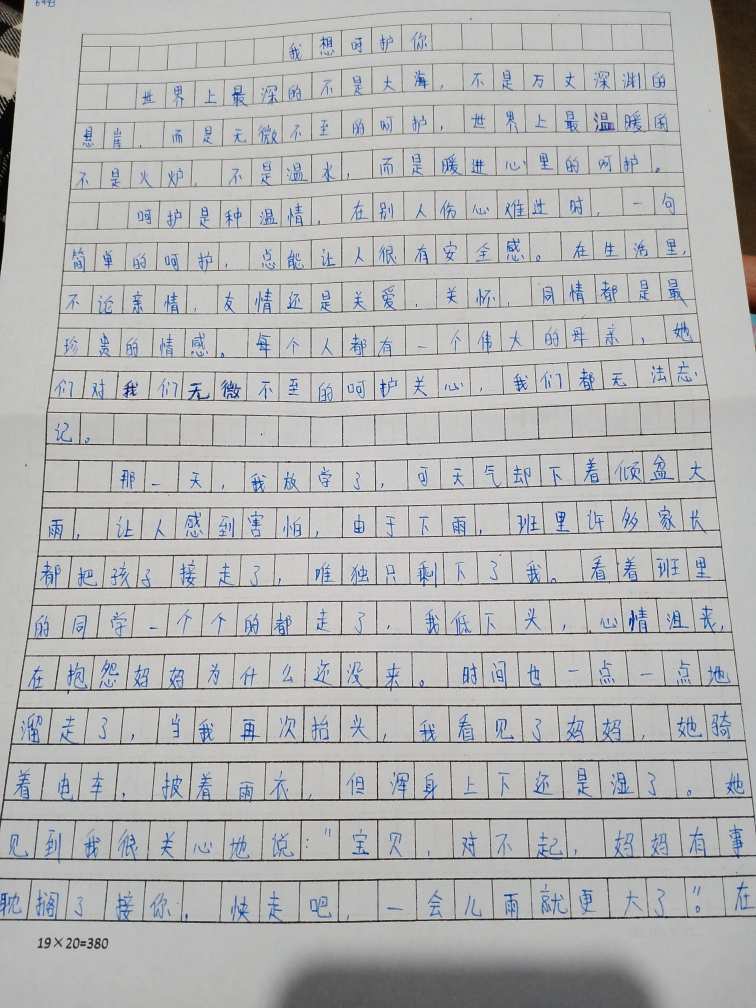 我想呵护你
世界上最深的不是大海，不是万丈深渊的
悬崖，而是无微不至的呵护，世界上最温暖的
不是火炉，不是温水，而是暖进心里的呵护。
呵护是种温情，在别人伤心难过时，一句
简单的呵护，总能让人很有安全感。在生活里，
不论亲情，友情还是关爱 关怀，同情都是最
珍贵的情感。每个人都有一个伟大的母亲，她
们对我们无微不至的呵护关心，我们都无法忘
记。
那一天，我放学了，可天气却下着倾盆大
雨，让人感到害怕，由于下雨，班里许多家长
都把孩子接走了，唯独只剩下了我。看着班里
的同学一个个的都走了，我低下头，心情沮丧，
在抱怨妈妈为什么还没来。时间也一点一点地
溜走了，当我再次抬头，我看见了妈妈，她骑
着电车，披着雨衣，但浑身上下还是湿了。她
见到我很关心地说："宝贝，对不起，妈妈有事
耽搁了接你。快走吧，一会儿雨就更大了"。在
19×20=380